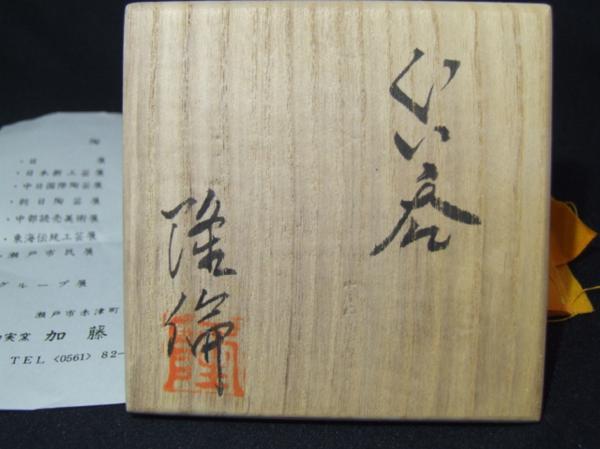 ぐい呑
隆倫
陶
・日展
・日本新工芸展
・中日国際陶芸展
・朝日陶芸展
・中部読売美術展
・東海伝統工芸展
・瀬戸市民展
グループ展
瀬戸市赤津町
実堂 加藤
TEL <0561> 82-